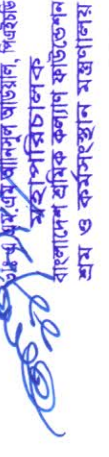 এস.এম.আনিসুল আউয়াল, পিএইচডি
মহাপরিচালক
বাংলাদেশ শ্রমিক কল্যাণ ফাউন্ডেশন
শ্রম ও কর্মসংস্থান মন্ত্রণালয়